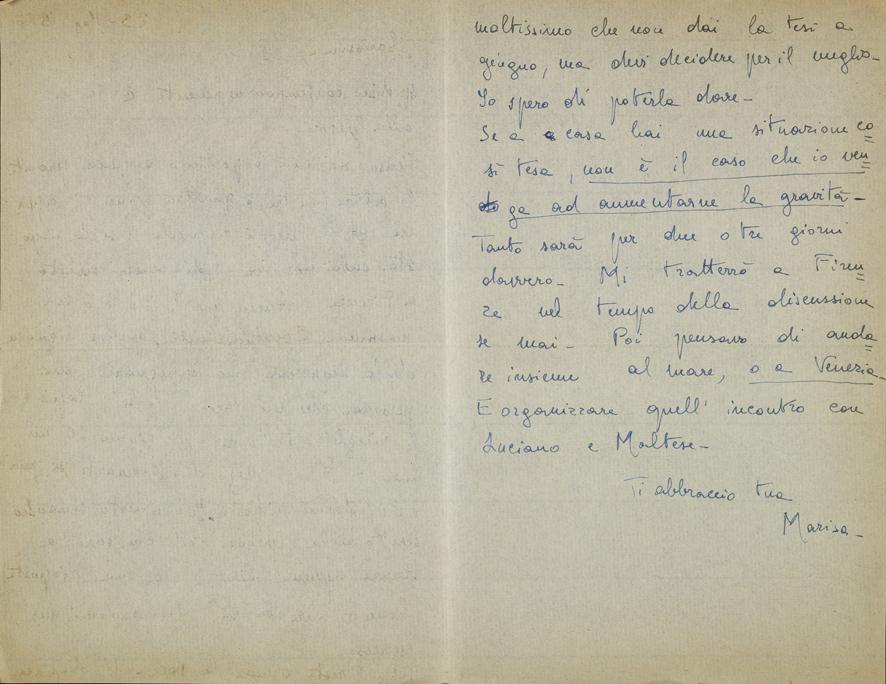 moltissimo che non dai la tesi a
giugno, ma devi decidere per il meglio -
Io spero di poterla dare -
Se a casa hai una situazione co=
sì tesa, non è il caso che io ven=
ga ad aumentarne la gravità -
Tanto sarà per due o tre giorni
davvero - Mi tratterrò a Firen=
ze nel tempo della discussione
se mai - Poi pensavo di anda=
re insieme al mare, o a Venezia -
E organizzare quell' incontro con
Luciano e Maltese -
Ti abbraccio tua
Marisa -